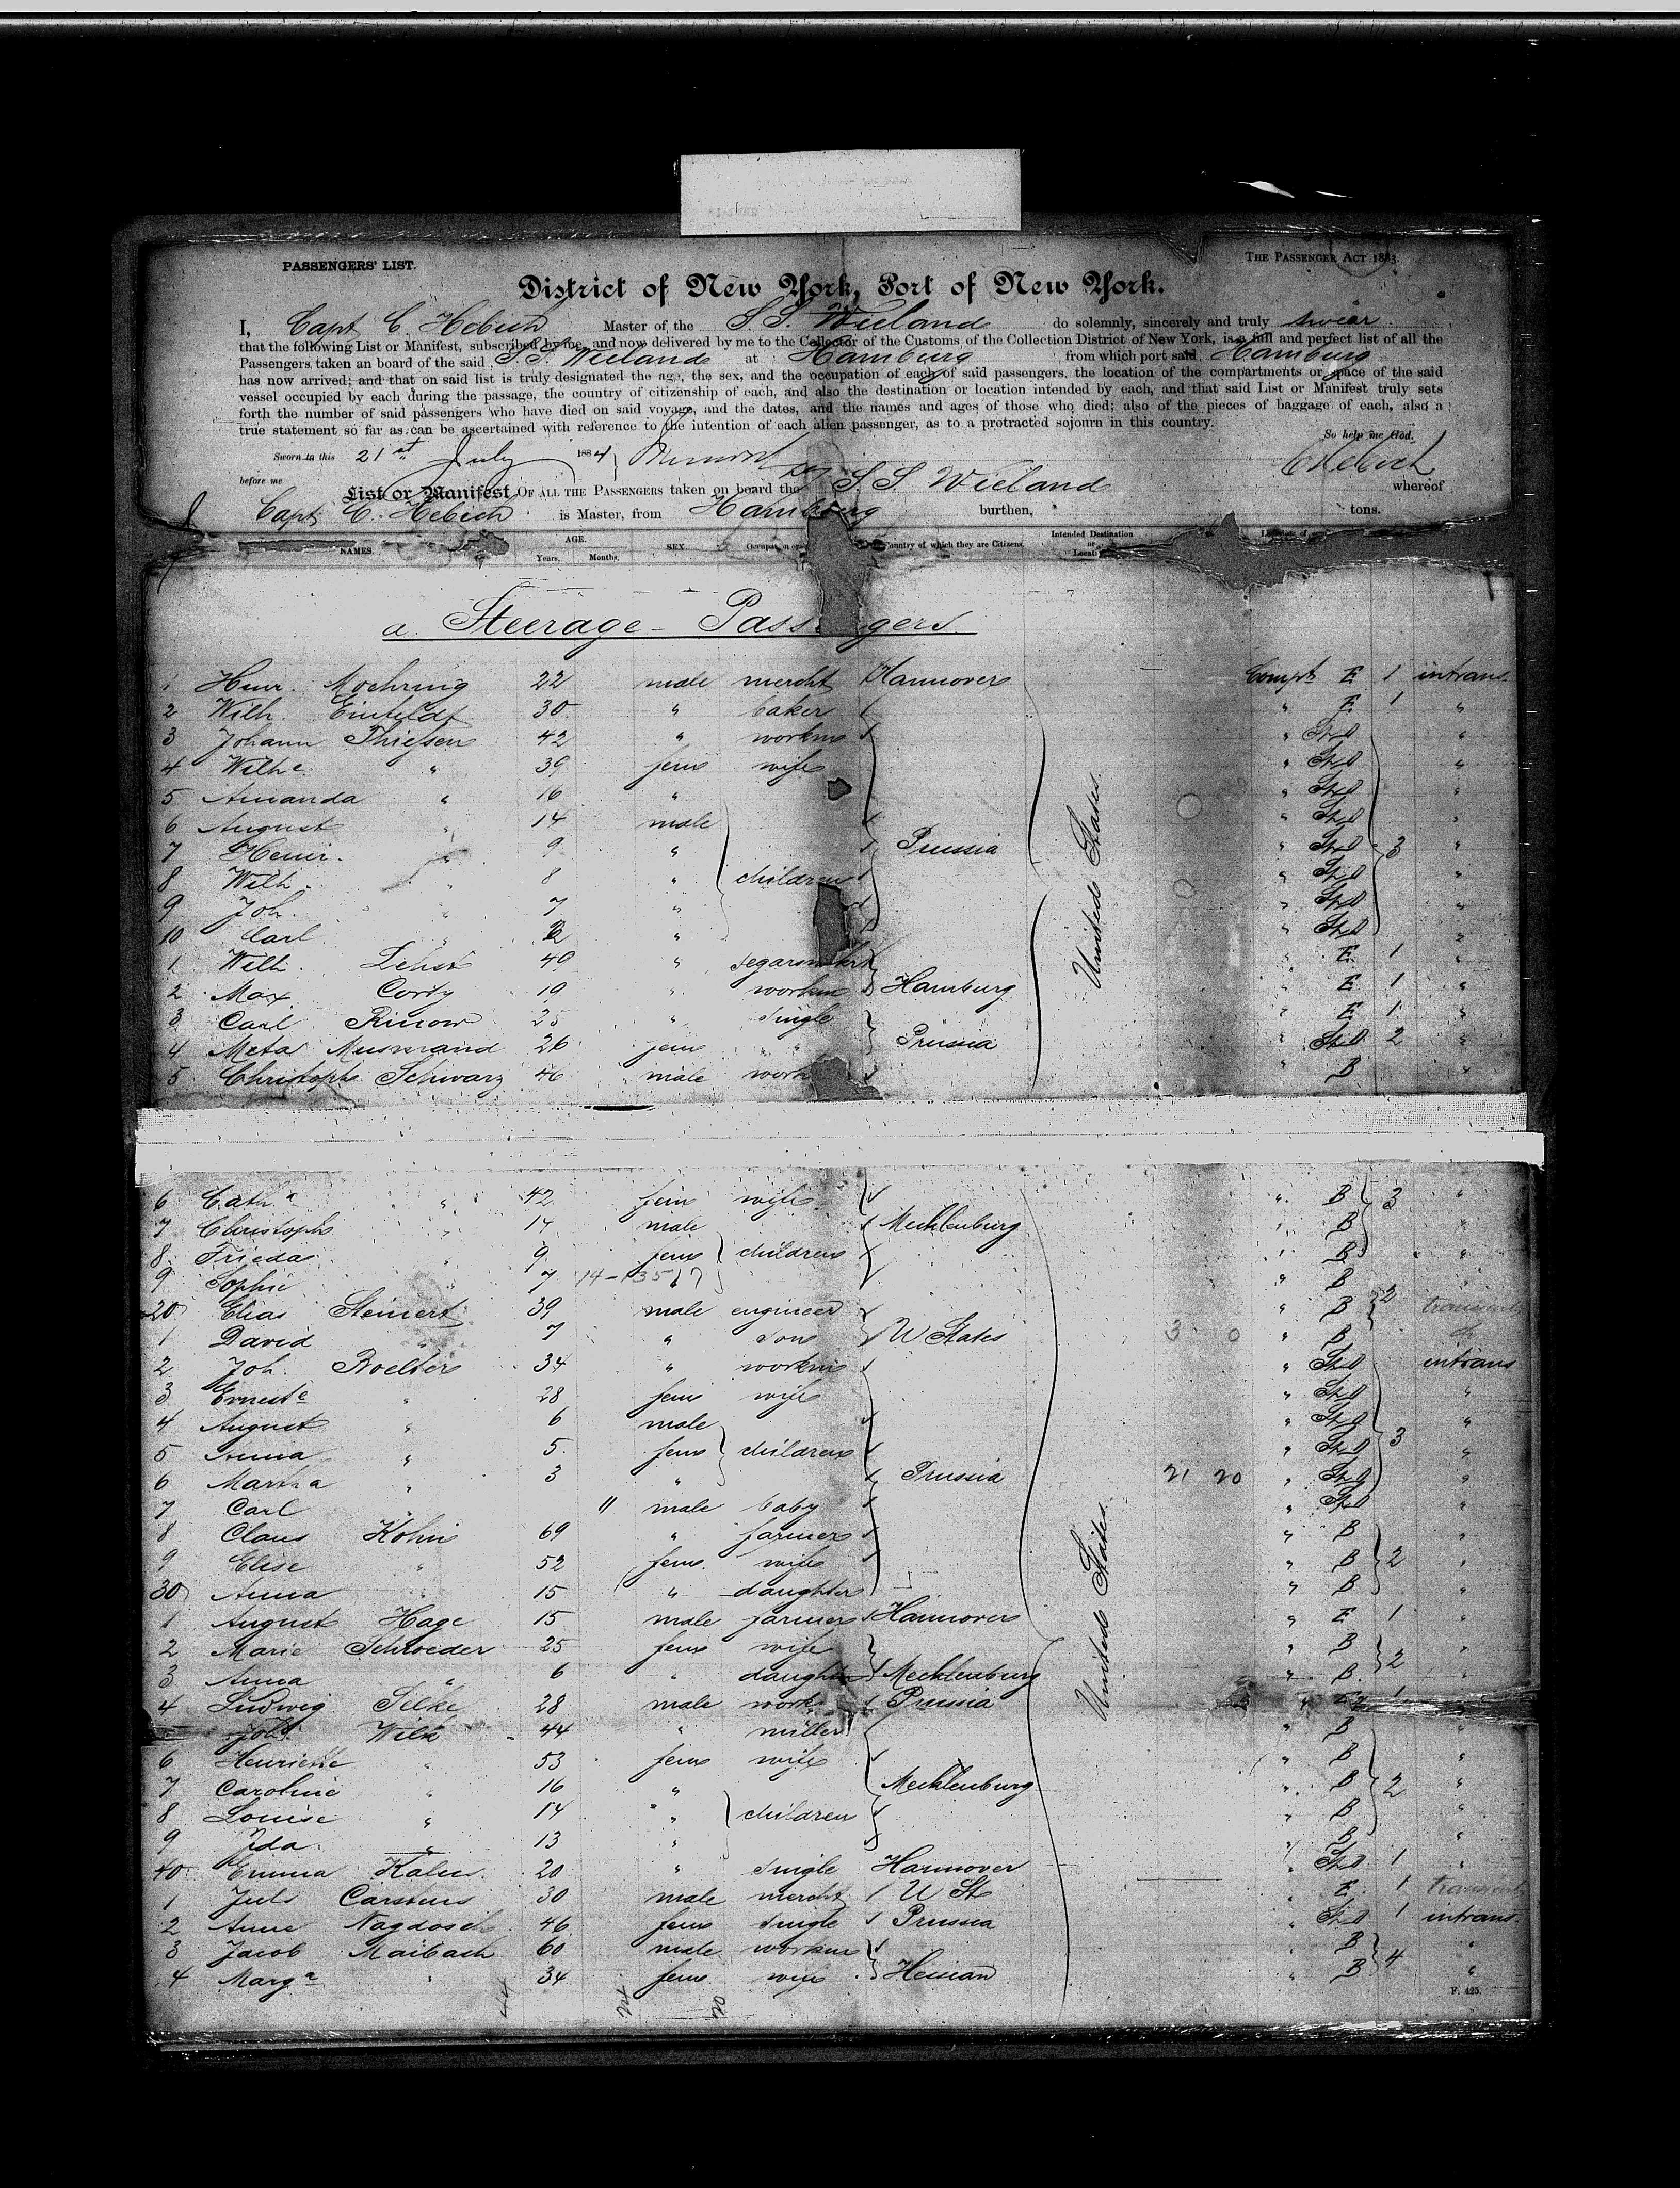 PASSENGERS' LIST.
THE PASSENGER ACT 1883.
District of New York, Port of New York.
I, Capt C. Hebich Master of the S.S. Wieland do solemnly, sincerely and truly swear
that the following List or Manifest, subscribed by me, and now delivered by me to the Collector of the Customs of the Collection District of New York, is a full and perfect list of all the
Passengers taken an board of the said S.S. Wieland at Hamburg from which port said Hamburg
has now arrived; and that on said list is truly designated the age, the sex, and the occupation of each of said passengers, the location of the compartments or space of the said
vessel occupied by each during the passage, the country of citizenship of each, and also the destination or location intended by each, and that said List or Manifest truly sets
forth the number of said passengers who have died on said voyage, and the dates, and the names and ages of those who died; also of the pieces of baggage of each, also a
true statement so far as can be ascertained with reference to the intention of each alien passenger, as to a protracted sojourn in this country.
So help me God.
Sworn to this 21st July 1884 C Hebich
before me
List or Manifest OF ALL THE PASSENGERS taken on board the S.S. Wieland whereof
Capt. C. Hebich is Master, from Hamburg burthen, tons.
NAMES. AGE. Years. Months. SEX Country of which they are Citizens. Intended Destination or
a. Steerage-Passengers.
1 Heinr. Moehring 22 male mercht Hannover Compt E 1 intrans
2 Wilh. Einfeldt 30 " baker " E 1 "
3 Johann Thiessen 42 " workm " St.D "
4 Wilhe " 39 fem wife " St.D "
5 Amanda " 16 " " St.D "
6 August " 14 male " St.D "
7 Heinr. " 9 " Prussia " St.D 3 "
8 Wilh. " 8 " children " St.D "
9 Joh. " 7 " " St.D "
10 Carl " " " St.D "
1 Wilh. 49 " " E 1 "
2 Max 19 " workm Hamburg " E 1 "
3 Carl Rinow 25 " single " E 1 "
4 Meta Musmand 26 fem " Prussia " St.D 2 "
5 Christoph Schwarz 46 male work " B "
United States.
6 Catha " 42 fem wife " B 3 "
7 Christoph " 14 male Mecklenburg " B "
8 Frieda " 9 fem children " B "
9 Sophie " 7 " " B
20 Elias Steinert 39 male engineer " B 2 transient
1 David " 7 " son U States 3 0 " B
2 Joh. Roelter 34 " workm " St.D intrans
3 Erneste " 28 fem wife " St.D "
4 August " 6 male " St.D "
5 Anna " 5 fem children " St.D 3 "
6 Martha " 3 " Prussia 21 20 " St.D "
7 Carl " 11 male baby " St.D "
8 Claus Kohn 69 " farmer " B "
9 Elise " 52 fem wife " B 2 "
30 Anna 15 " daughter " B "
1 August Hage 15 male farmer Hannover " E 1 "
2 Marie Schroeder 25 fem wife " B "
3 Anna " 6 " daughter Mecklenburg " B 2 "
4 Ludwig Silke 28 male work Prussia
Joh. Wilk 44 " miller " B "
6 Henriette " 53 fem wife " B "
7 Caroline " 16 " Mecklenburg " B 2 "
8 Louise " 14 " children " B "
9 Ida " 13 " " B "
40 Emma Kalen 20 " single Hannover " St.D 1 "
1 Juls Carstens 30 male mercht U St " E 1 transient
2 Anne Nagdosch 46 fem single Prussia " St.D 1 intrans
3 Jacob Maibach 60 male workm " B "
4 Marga " 34 fem wife Hessian " B 4 "
United States.
F. 425.
44 24 20